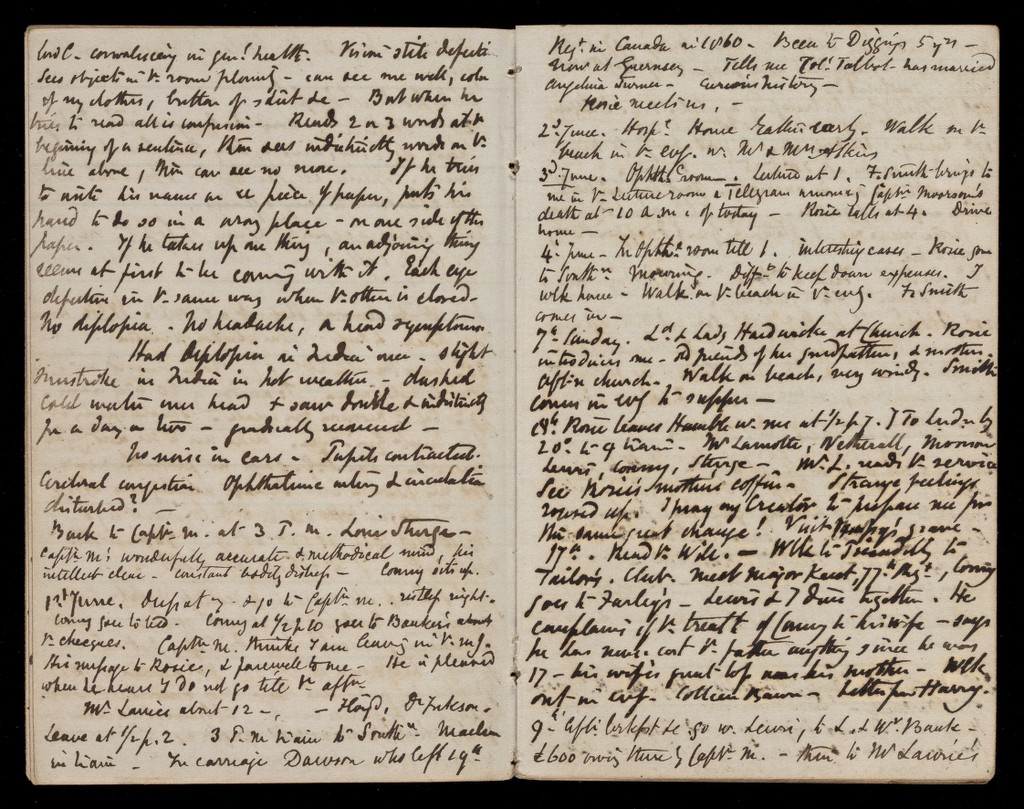 lord C - convalescing in genl. health. Vision still defective
Sees objects in Vr room plainly - can see me well, color
of my clothes, button of shirt &c - But when he
tries to read all is confusion - Reads 2 or 3 words at Vr
beginning of a sentence, then sees indistinctly words on Vr
line above, then can see no more. If he tries
to write his name on a piece of paper, puts his
hand to do so in a wrong place - on one side of the
paper. If he takes up one thing, an adjoining thing
seems at first to be coming with it. Each eye
defective in Vr same way when Vr other is closed -
No diplopia. - No headache, or head symptoms
Had Diplopia in India once. slight
sunstroke in India in hot weather - dashed
cold water over head & saw double & indistinctly
for a day or two - gradually recovered -
No noise in ears - Pupils contracted.
Cerebral congestion Ophthalmic artery & circulation
disturbed? -
Back to Captn M. at 3 P.M. Louie Sturge -
Captn M's wonderfully accurate & methodical mind, his
intellect clear - constant bodily distress - Conny sits up.
1st June. & go to Captn M. restless night -
Conny goes to bed. Conny at 1/2 p 10 goes to Bankers about
Vr cheques. Captn M. thinks I am leaving in Vr mg.
His message to Rosie, & farewell to me - He is pleased
when he hears I do not go till Vr aftn
Mr Lawrie about 12 -, - Floyd, Dickson -
Leave at 1/2 p. 2. 3 P.M train to Southn.
in train - In carriage Dawson who left 19th
Regt. in Canada in 1860 - Been to Diggings 5 yrs -
now at Guernsey - Tells me Col. Talbot has married
Angelina Turner - Curious history -
Rosie meets us, -
2d June. Hospl. Home early. Walk on Vr
beach in Vr evg. w. Mr & Mrs Atkins
3d June. Ophthc room. Lecture at 1. F. Smith brings to
me in Vr Lecture room a Telegram announcing Captn Moorsom's
death at 10 A.M. of today - Rosie calls at 4. Drive
home -
4th June - In Ophthc room till 1. interesting cases - Rosie gone
to Southn Difft to keep down expenses. I
walk home - Walk on Vr beach in Vr evg. F. Smith
comes in -
7th Sunday. Ld. & Lady Hardwicke at Church - Rosie
introduces me - old friends of her grandfather, & mother.
After church - Walk on beach, very windy. Smith
comes in evg to supper -
8th. Rosie leaves Hamble w. me at 1/2 p 7. I To London by
20 to 9 train - Mr Lamotte, Netherall, Moorsom
Lewis, Conny, Sturge - Mr L. reads Vr service
See Rosie's mother's coffin - Strange feelings
roused up. I pray my Creator to prepare me for
the same great change! Visit grave -
17th. Read Vr Will. - Walk to Piccadilly to
Tailor's. Club. meet Major Kent, 77th Regt, Conny
goes to Farley's - Lewis & I dine together. He
complains of Vr treatt of Conny to his wife - says
he has never cost Vr father anything since he was
17 - his wife's great loss was his mother - Walk
out in evg. Colleen Bawn - Letter from Harry.
9th After brekfst &c go w. Lewis, to L. & Wr Bank -
£600 owing there by Captn M. - then to Mr Lawrie's